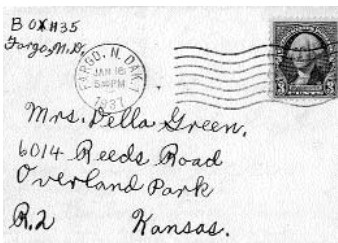 Box 435
Fargo, N.D.
FARGO, N. DAK.
JAN 16
5 PM
1937
3 3
Mrs. Della Green.
6014 Reeds Road
Overland Park
R.2 Kansas.